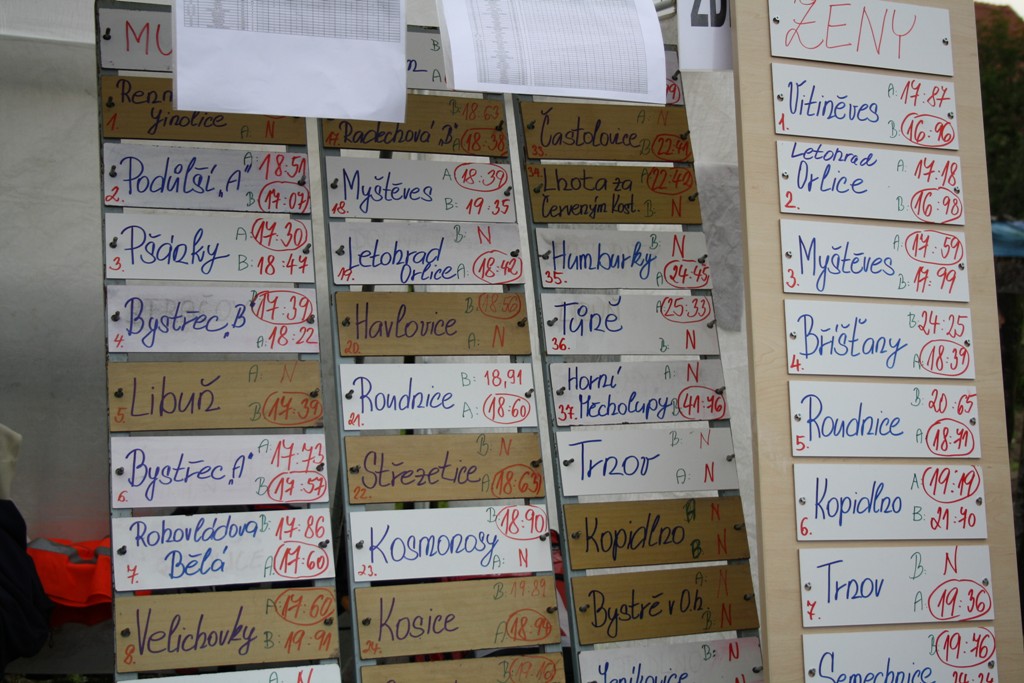 MU
Renn
Jinolice
1. N
Podůlší "A" A: 18:51
2. B: 17:07
Pšánky A: 17:30
3. B: 18:47
Bystřec "B" B: 17:39
4. A: 18:22
Libuň A: N
5. B: 17:39
Bystřec "A" A: 17:73
6. B: 17:57
Rohovládova B: 17:86
Bělá A: 17:60
7.
Velichovky A: 17:60
8. B: 19:91
B: 18:63
Radechová "B" A: 18:38
Myštěves A: 18:39
18. B: 19:35
Letohrad B: N
Orlice A: 18:42
19.
Havlovice B: 18:58
20. A: N
Roudnice B: 18,91
21. A: 18:60
Střezetice B: N
22. A: 18:63
Kosmonosy B: 18:90
23. A: N
Kosice B: 19:89
24. A: 18:94
Častolovice N
33. B: 22:41
34. Lhota za A: 22:49
Červeným Kost. N
Humburky B: N
35. A: 24:45
Tůně A: 25:33
36. B: N
Horní A: N
37. Měcholupy B: 41:76
Trnov B: N
A: N
Kopidlno A: N
B: N
Bystré v O.h. A: N
B: N
Jeníkovice B: N
ZD
ŽENY
Vitiněves A: 17:87
1. B: 16:96
Letohrad
Orlice A: 17:18
2. B: 16:98
Myštěves A: 17:59
3. B: 17:99
Bříšťany B: 24:25
4. A: 18:39
Roudnice B: 20:65
5. A: 18:71
Kopidlno A: 19:19
6. B: 21:70
Trnov B: N
7. A: 19:36
Semechnice B: 19:76